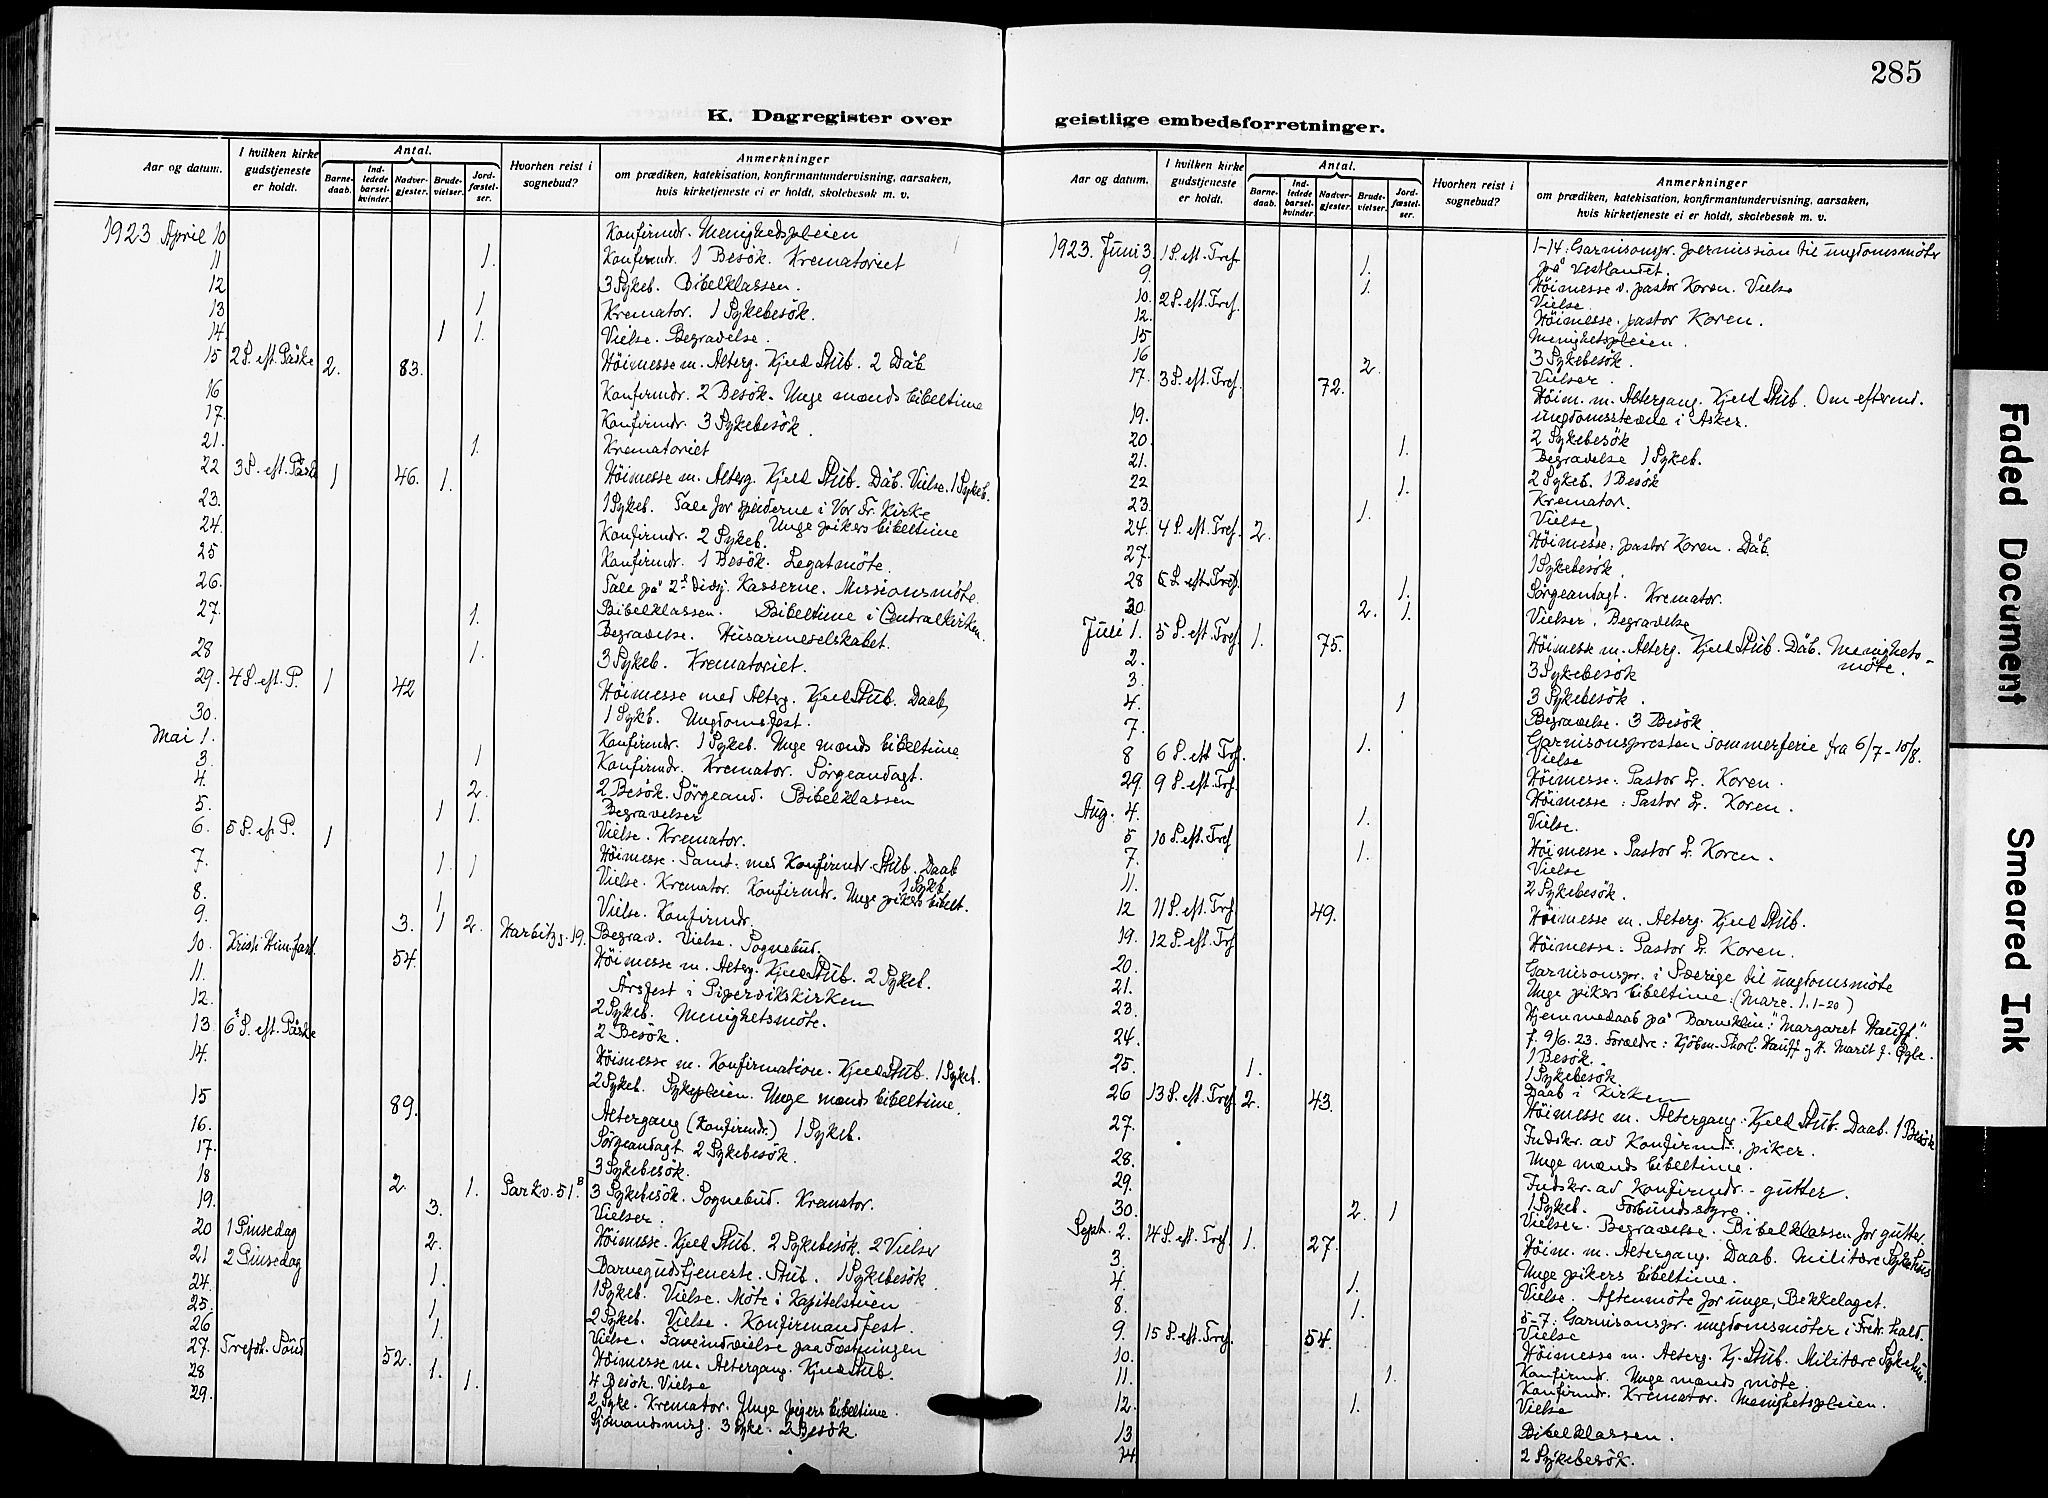 285
K. Dagregister over geistlige embedsforretninger.
Aar og datum.
I hvilken kirke gudstjeneste er holdt.
Antal.
Barnedaab.
Indledede barselkvinder.
Nadvergjester.
Brudevielser.
Jordfæstelser.
Hvorhen reist i sognebud?
Anmerkninger
om prædiken, katekisation, konfirmantundervisning, aarsaken,
hvis kirketjeneste ei er holdt, skolebesøk m. v.
1923 April 10 Konfirmdr. Menighedspleien
11 1. Konfirmdr. 1 Besök. Krematoriet
12 3 Sykeb. Bibelklassen.
13 1 Kremator. 1 Sykebesök.
14 1 1. Vielse. Begravelse.
15 2 S. eft. Påske 2. 83. Höimesse m. Alterg. Kjeld Stub. 2 Dåb
16 Konfirmdr. 2 Besök. Unge mænds bibeltime
17. Konfirmdr. 3 Sykebesök.
21. 1. Krematoriet
22 3 S. eft. Påske 1 46. 1. Höimesse m. Alterg. Kjeld Stub. Dåb. Vielse. 1 Sykeb.
23. 1 Sykeb. Tale for speiderne i Vor Fr. Kirke
24. Konfirmdr. 2 Sykeb. Unge pikers bibeltime
25 Konfirmdr. 1 Besök. Legatmöte.
26. Tale på 2s divisj. Kasserne. Missionsmöte.
27. 1. Bibelklassen. Bibeltime i Centralkirken.
Begravelse. Husarmeselskabet.
28 1. 3 Sykeb. Krematoriet.
29. 4 S. eft. P. 1 42 Höimesse med Alterg. Kjeld Stub. Daab,
30. 1 Sykb. Ungdomsfest.
Mai 1. Konfirmdr. 1 Sykeb. Unge mænds bibeltime
3. 1 Konfirmdr. Kremator. Sörgeandagt.
4. 2. 2 Besök. Sörgeand. Bibelklassen
5. 1 1. Begravelser
6. 5 S. ef. P. 1 Vielse. Kremator.
Höimesse. Samt: med Konfirmdr. Stub. Daab 1 Sykb.
7. 1 1 Vielse. Kremator. Konfirmdr. Unge pikers bibelt.
8. 1 Vielse. Konfirmdr.
9. 3. 1 2. Harbitzg. 19. Begrav. Vielse. Sognebud.
10. Kristi Himfart. 54. Höimesse m. Alterg. Kjeld Stub. 2 Sykeb.
11. Årsfest i Pipervikskirken
12. 2 Sykeb. Menighetsmöte.
13. 6 S. eft. Påske 2 Besök.
14. Höimesse m. Konfirmation. Kjeld Stub. 1 Sykeb.
2 Sykeb. Sykepleien. Unge mænds bibeltime.
15 89. Altergang (Konfirmdr.) 1 Sykeb.
16. Sörgeandagt 2 Sykebesök.
17. 3 Sykebesök.
18 2. 1. Parkv. 51.B 3 Sykebesök. Sognebud. Kremator.
19. 3. Vielser.
20 1 Pinsedag 2. Höimesse. Kjeld Stub. 2 Sykebesök. 2 Vielser
21 2 Pinsedag Barnegudstjeneste. Stub. 1 Sykebesök
24. 1. 1 Sykeb. Vielse. Möte i Kapitelstuen
25. 1 2 Sykeb. Vielse. Konfirmandfest.
26 1. Vielse. Faneindvielse paa Fæstningen
27. Trefoh. Sönd 52. Höimesse m. Altergang. Kjeld Stub.
28 1. 4 Besök. Vielse
29. 1. 2 Syke. Kremator. Unge pigers bibeltime.
Sjömandsmisj. 3 Syke. 2 Besök.
Aar og datum.
I hvilken kirke gudstjeneste er holdt.
Antal.
Barnedaab.
Indledede barselkvinder.
Nadvergjester.
Brudevielser.
Jordfæstelser.
Hvorhen reist i sognebud?
Anmerkninger
om prædiken, katekisation, konfirmantundervisning, aarsaken,
hvis kirketjeneste ei er holdt, skolebesøk m. v.
1923. Juni 3. 1 S. eft. Tref. 1-14: Garnisonspr. permission til ungdomsmöter
på Vestlandet.
9. 1. Höimesse v. pastor Koren. Vielse
10. 2 S. eft. Tref. 1. Vielse
12. Höimesse. pastor Koren.
15 Menighetspleien.
16 3 Sykebesök.
17. 3 S. eft. Tref. 72. 2. Vielser.
Höim. m. Altergang. Kjeld Stub. Om eftermd.
19. ungdomsstevne i Asker.
20 2 Sykebesök
21. 1. Begravelse 1 Sykeb.
22 2 Sykeb. 1 Besök
23. 1. Kremator.
24. 4 S. eft. Tref. 2. 1. Vielse,
27. Höimesse: pastor Koren. Dåb.
28 1 Sykebesök.
30. 1. Sörgeandagt. Kremator.
2. 1. Vielser. Begravelse
Juli 1. 5 S. eft. Tref. 1. 75. Höimesse m. Alterg. Kjeld Stub. Dåb. Menighets-
möte.
2. 3 Sykebesök
3. 3 Sykebesök.
4. 1 Begravelse. 3 Besök.
7. Garnisonspresten sommerferie fra 6/7-10/8.
8 6 S. eft Tref. 1. Vielse
29. 9 S. eft. Tref. Höimesse: Pastor Dr. Koren.
Höimesse: Pastor Dr. Koren.
Aug. 4. 1. Vielse.
5 10 S. eft. Tref Höimesse. Pastor Dr. Koren.
7. 1. Vielse
11. 2 Sykebesök.
12 11 S. eft. Tref 49. Höimesse m. Alterg. Kjeld Stub.
19. 12 S. eft. Tref Höimesse: Pastor Dr. Koren.
20. Garnisonspr. i Sverige til ungdomsmöte
21. Unge pikers bibeltime (Marc. 1. 1-20)
23. Hjemmedaab på Barneklin: "Margaret Hauff"
f. 9/6. 23. Forældre: Kjöbm. Thorl. Hauff og H. Marit f.
24. 1 Besök.
25. 1. 1 Sykebesök.
Daab i Kirken
26 13 S. eft. Tref. 2. 43. Höimesse m. Altergang: Kjeld Stub. Daab. 1 Besök
27. Indskr. av Konfirmdr. piker.
28. Unge mænds bibeltime.
29. Indskr. av Konfirmdr. - gutter.
30. 2. 1 1 Sykeb. Forbundsstyre.
Vielser. Begravelse. Bibelklassen for gutter.
Sept. 2. 14 S. eft. Tref 1. 27. Höim. m. Altergang. Daab. Militære Sykehus
3. Unge pikers bibeltime.
4. 1. Vielse. Aftenmöte for unge, Bekkelaget.
8. 1. 5-7: Garnisonspr. ungdomsmöter i Fredr.hald.
Vielse
9. 15 S. eft. Tref. 54. Höimesse m. Alterg. Kj. Stub. Militære Sykehus:
10. Konfirmdr. Unge mænds möte.
11. 1 Konfirmdr. Kremator. Menighetspleien.
12. 1. Vielse
13 Bibelklassen.
14. 2 Sykebesök.
Faded Document
Smeared Ink